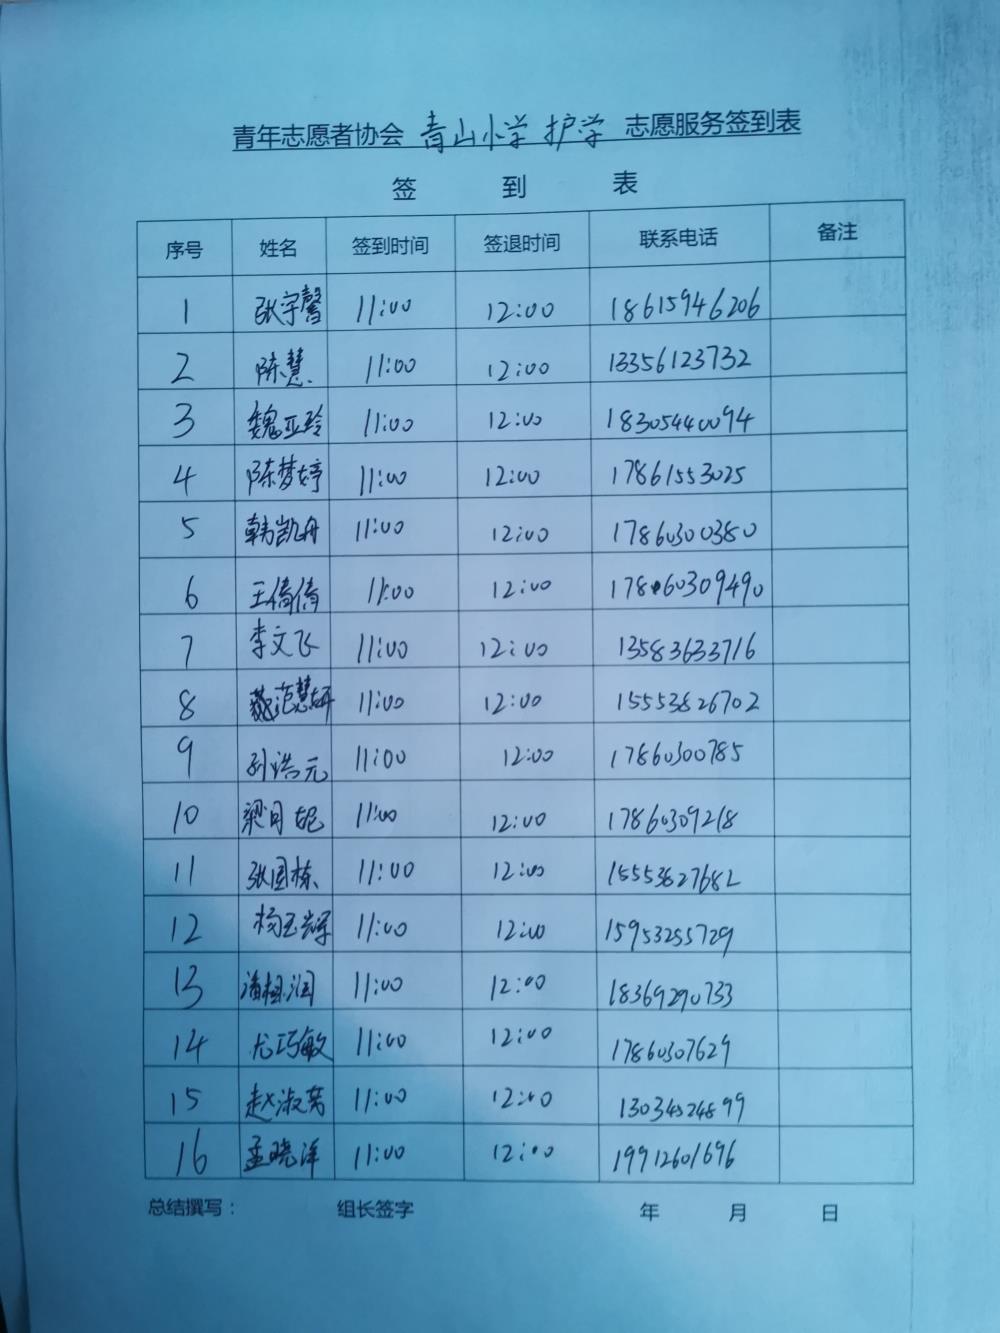 青年志愿者协会 青山小学护学 志愿服务签到表
签 到 表
序号 姓名 签到时间 签退时间 联系电话 备注
1 张宇馨 11:00 12:00 18615946206
2 陈慧 11:00 12:00 13356123732
3 魏亚玲 11:00 12:00 18305440094
4 陈梦婷 11:00 12:00 17861553025
5 韩凯舟 11:00 12:00 17860300380
6 王倩倩 11:00 12:00 17860309490
7 李文飞 11:00 12:00 13583633716
8 范慧妍 11:00 12:00 15553826702
9 孙浩元 11:00 12:00 17860300785
10 梁月妮 11:00 12:00 17860309218
11 张国栋 11:00 12:00 15553827682
12 杨玉辉 11:00 12:00 15953255729
13 11:00 12:00 18369290733
14 尤巧敏 11:00 12:00 17860307629
15 赵淑芳 11:00 12:00 13034524899
16 孟晓洋 11:00 12:00 19912601696
总结撰写： 组长签字 年 月 日